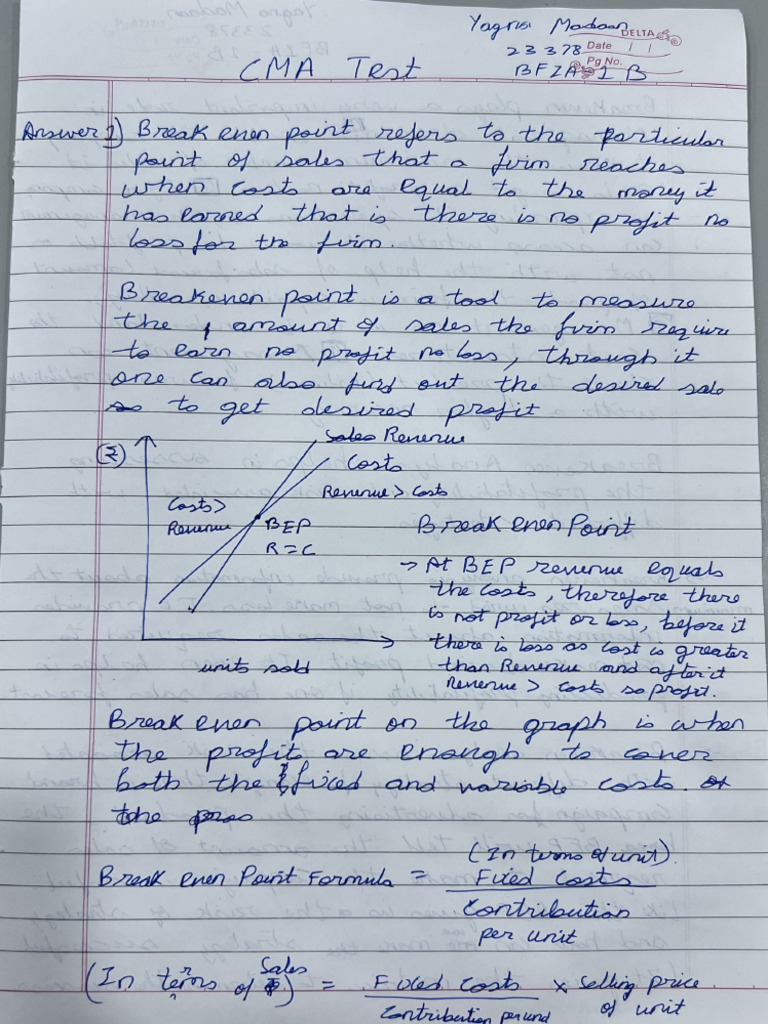 Yagrisi Madaan
DELTA
23378 Date
Pg No.
BFIA - 1B
CMA Test
Answer 1) Break even point refers to the particular
point of sales that a firm reaches
when costs are equal to the money it
has earned that is there is no profit no
loss for the firm.
Breakeven point is a tool to measure
the amount of sales the firm require
to earn no profit no loss, through it
one can also find out the desired sale
to get desired profit
(₹)
Sales Revenue
Costs
Revenue > Costs
Costs >
Revenue
BEP
R = C
units sold
Break even Point
→ At BEP revenue equals
the costs, therefore there
is not profit or loss, before it
there is loss as cost is greater
than Revenue and after it
Revenue > costs so profit.
Break even point on the graph is when
the profit are enough to cover
both the fixed and variable costs.
the
Break even Point Formula = (In terms of unit)
Fixed Costs
Contribution
per unit
(In terms of Sales) = Fixed Costs × Selling price
Contribution per unit of unit